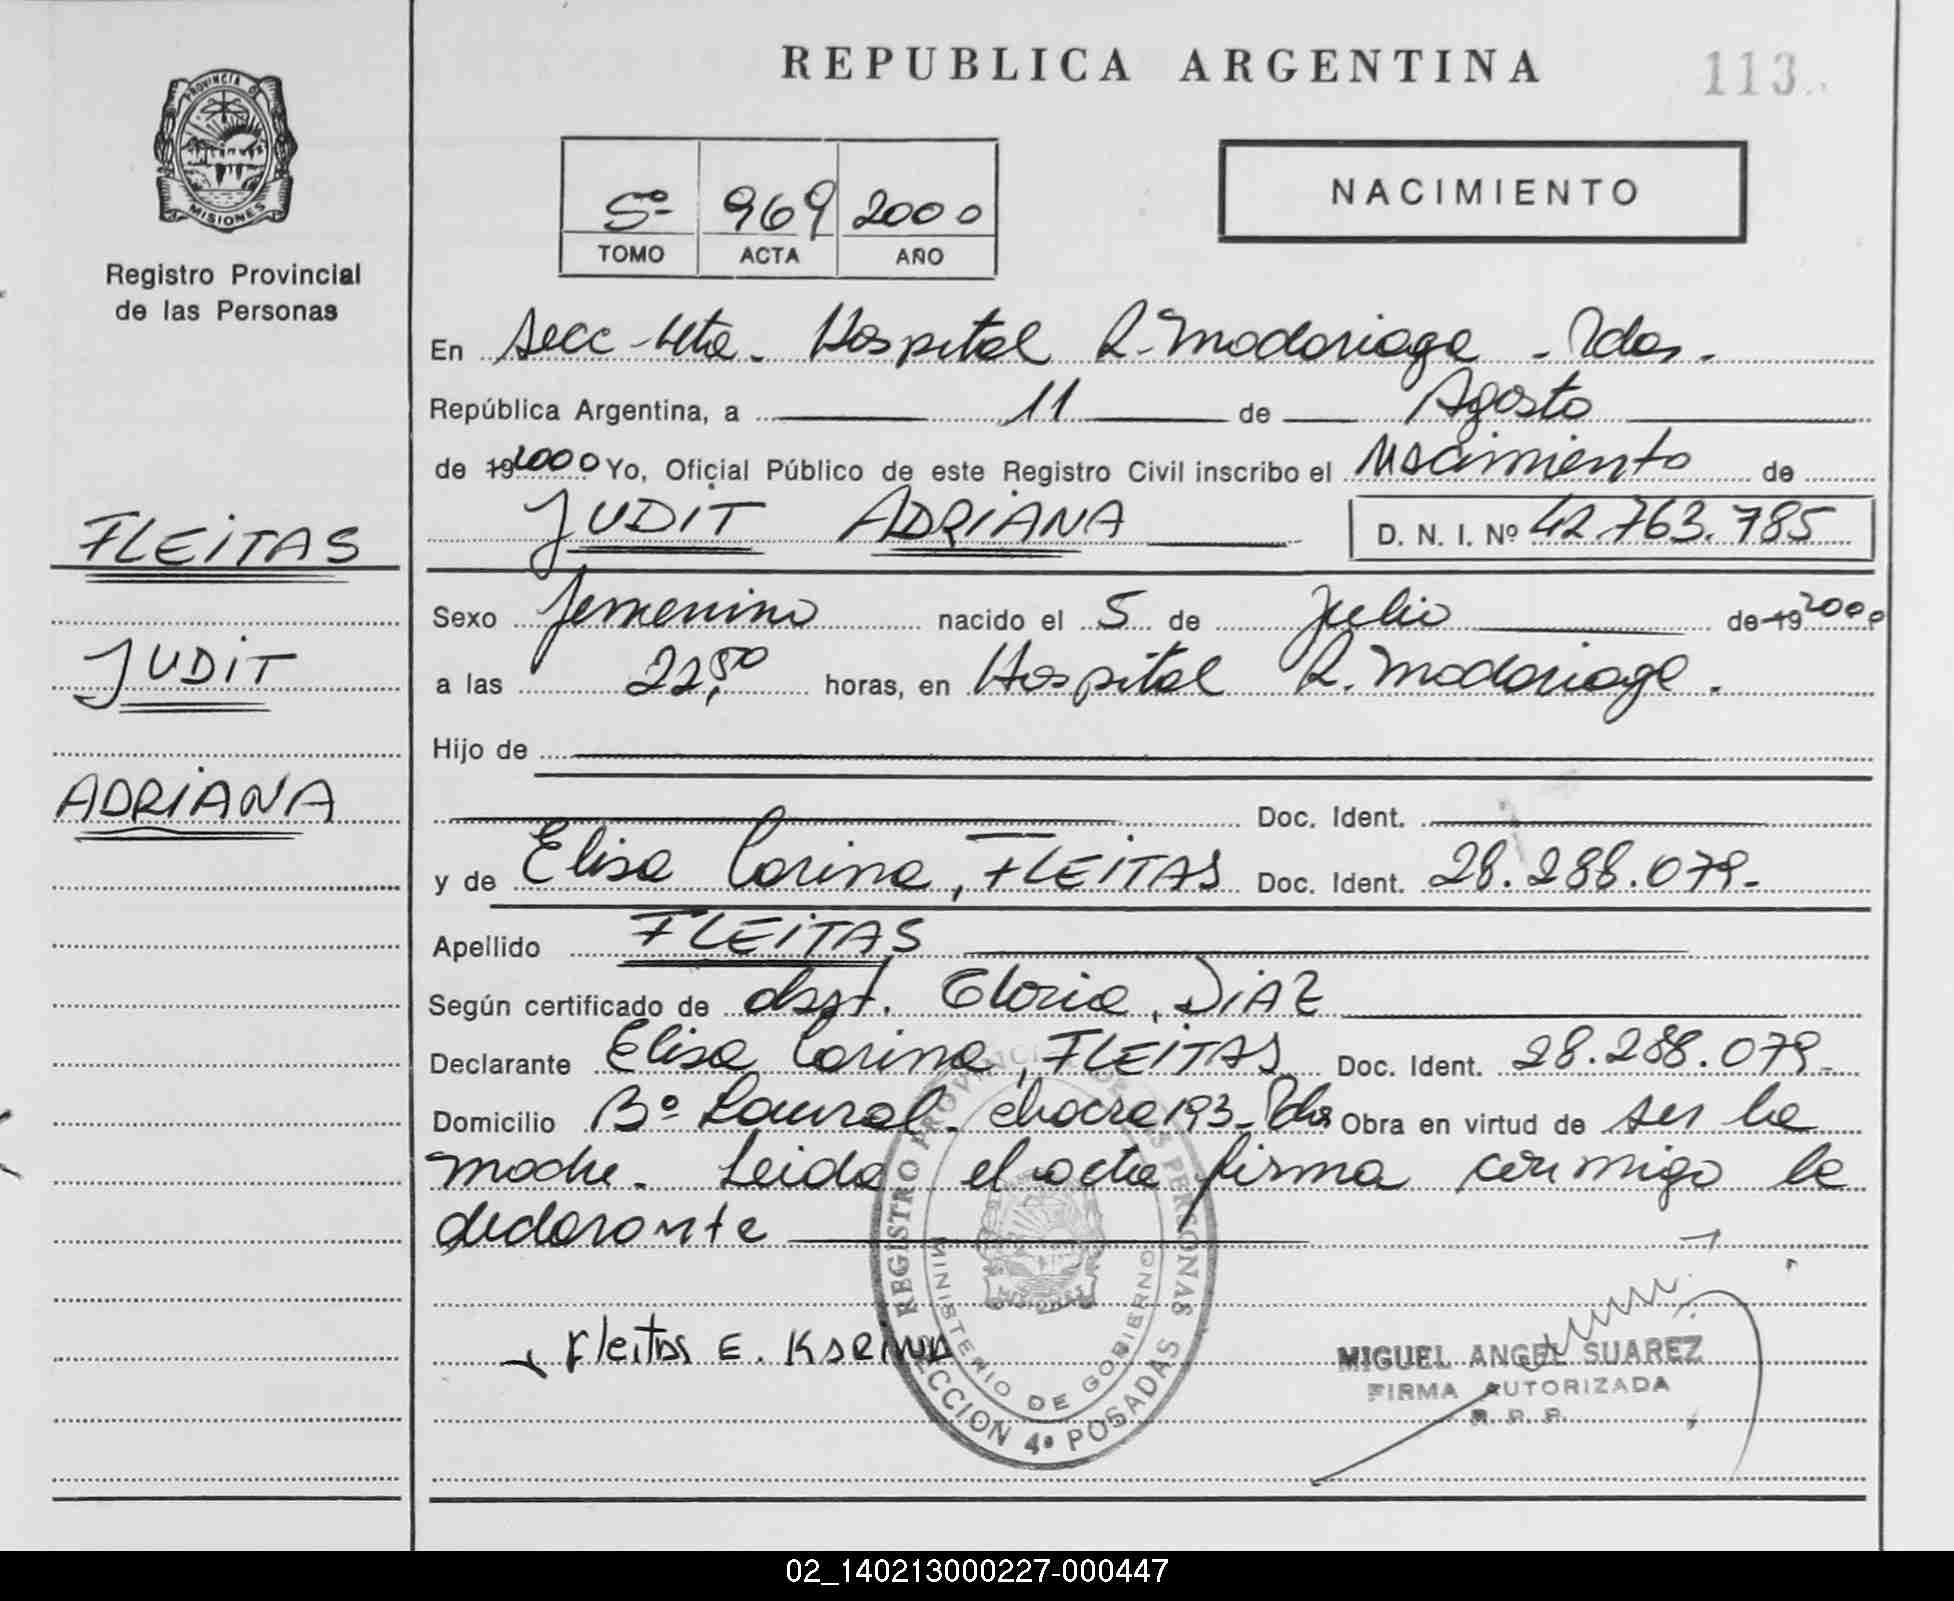 REPUBLICA ARGENTINA
113
PROVINCIA DE
MISIONES
Registro Provincial
de las Personas
5º 969 2000
TOMO ACTA AÑO
NACIMIENTO
En Secc 4ta. Hospital R. Madariaga - Pdas.
República Argentina, a 11 de Agosto
de 19 2000 Yo, Oficial Público de este Registro Civil inscribo el Nacimiento de
JUDIT ADRIANA D. N. I. Nº 42.763.785
FLEITAS
JUDIT
ADRIANA
Sexo femenino nacido el 5 de Julio de 19 2000
a las 22,50 horas, en Hospital R. Madariaga.
Hijo de
Doc. Ident.
y de Elisa Carina, FLEITAS Doc. Ident. 28.288.079-
Apellido FLEITAS
Según certificado de obst. Gloria, DIAZ
Declarante Elisa Carina, FLEITAS Doc. Ident. 28.288.079-
Domicilio Bº Laurel - chacra 193 - Pdas Obra en virtud de ser la
madre. Leida el acta firma conmigo la
declarante
Fleitas E. Karina
REGISTRO PROVINCIAL DE LAS PERSONAS
MINISTERIO DE GOBIERNO
SECCION 4º POSADAS
MIGUEL ANGEL SUAREZ
FIRMA AUTORIZADA
R. P. P.
02_140213000227-000447